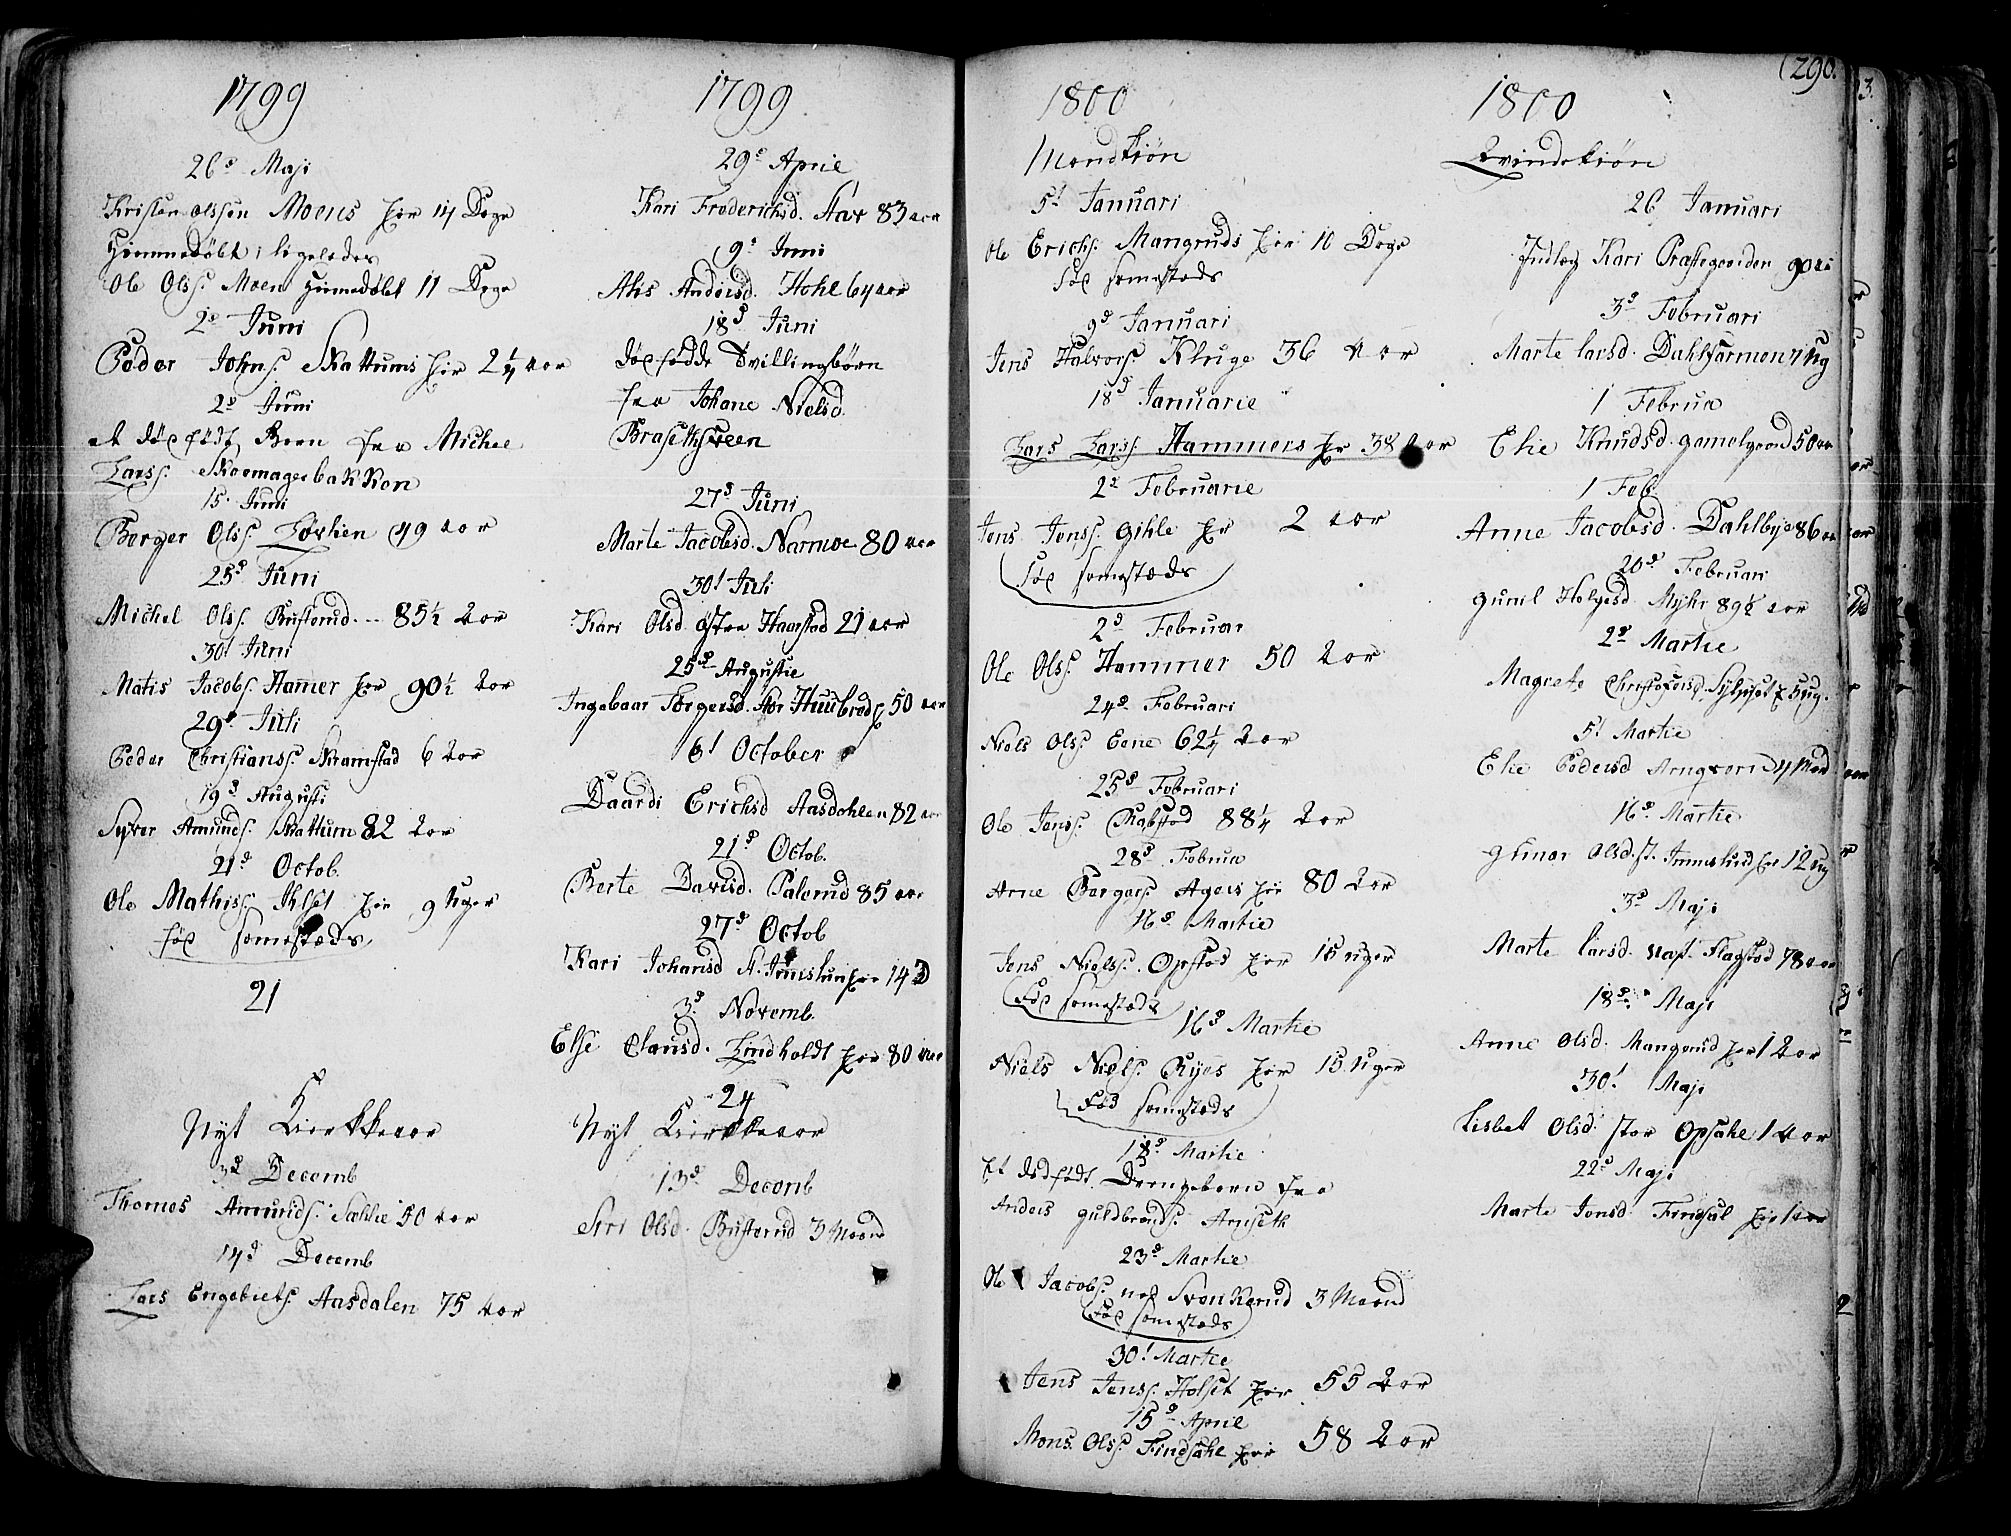 1799
26d Maji
Kristen Olssen Moens her 14 Dage
Hiemmedøbt; ligeledes
Ole Olss. Moen Hiemedøbt 11 Dage
2d Juni
Peder Johns. Skattums her 2 1/4 aar
2d Juni
et død født Barn fra Michel
Larss. Skoemagerbakken
15. Juni
Berger Olss. Løvlien 49 aar
23d Juni
Michel Olss. Busterud -- 85½ Aar
30t Juni
Matis Jacobs. Hamer her 90½ Aar
29d Juli
Peder Christianss. Skramstad 6 Aar
19d Augusti
Syver Amunds. Skattum 82 Aar
21d Octob.
Ole Mathiss. Ihlset her 9 Uger
død somestæds.
21
Nyt Kierkkeaar
3d Decemb
Thomes Amunds. Sæhlie 50 aar
14d Decemb
Lars Engebrets. Aasdalen 75 aar
1799
29d April
Kari Frederichsd. Aar 83 aar
9d Juni
Ahis Andersd. Hohl 64 aar
18d Juni
død fødde Tvillingbørn
fra Johane Nielsd.
Brasethsveen
27d Juni
Marte Jacobsd. Narmoe 80 aar
30t Juli
Kari Olsd. østre Haarstad 21 aar
25d Augustie
Ingebaar Torgersd. Stor Huubred 50 aar
6t October
Daardi Erichsd Aasdahlen 82 aar
21d Octob.
Berte Davisd. Palerud 85 aar
27d Octob
Kari Johansd St. Imislun her 14 D
3d Novemb.
Else Clausd. Lindholdt her 80 aar
24
Nyt Kierkkeaar
13d Decemb
Siri Olsd. Busterud 3 Maaned
(290.
1800
Mandkiøn
5t Januari
Ole Erichs. Mangruds her 10 Dage
død somestæds
9d Januari
Jens Halvors. Kluge 36 Aar
18d Januarie
Lars Larss. Hammers her 38 aar
2d Februarie
Jens Jenss. Gihle her 2 aar
død somestæds
2d Februar
Ole Olss. Hammer 50 Aar
24d Februari
Niels Olss. Eene 62 1/4 Aar
25d Februari
Ole Jenss. Skabstad 88 1/4 Aar
28d Februa
Arne Bergers. Agers her 80 Aar
16d Martie
Jens Nielss. Opstad her 15 uger
død somestædz
16d Martie
Niels Niels. Ryes her 15 Uger
død somestæds
18d Martie
Et dødfødt Drengebarn fra
Anders Guldbrands. Arnseth
23d Martie
Ole Jacobs. ned Svenkerud 3 Maaned
død somestæds
30t Martie
Jens Jenss. Holset her 55 Aar
15d April
Mons. Olss. Findsahl her 58 Aar
1800
Qvindekiøn
26 Januari
Indlæg Kari Præstegaarden 90 aar
3d Februari
Marte Larsd. Dahlsarmen 7 Ug
1 Februa
Elie Knudsd. gamelgaard 50 aar
1 Feb.
Anne Jacobsd. Dahlbye 86 aar
20d Februari
Gunil Holgesd. Myhr 89½ aar
2d Martie
Magrete Christophersd. 5 ug.
5t Martie
Elie Pedersd Arnqværn 4 Maa
16d Martie
Gunor Olsd. St. Immislund her 12 ug
3d Maji
Marte Larsd. Flagstad 78 aar
18d Maji
Anne Olsd. Mangerud her 1 Aar
30t Maji
Lisbet Olsd. stor Opsahl 1 Aar
22d Maji
Marte Jensd. Findsal her 1 aar